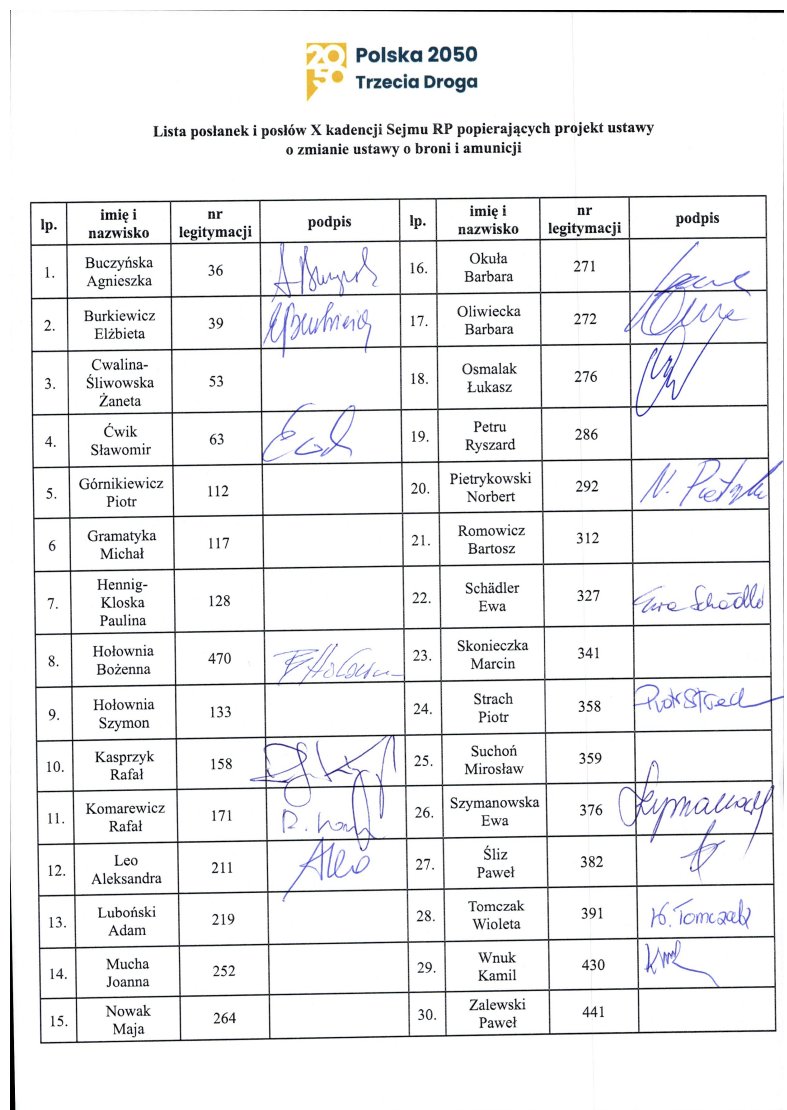 2050
Polska 2050
Trzecia Droga
Lista posłanek i posłów X kadencji Sejmu RP popierających projekt ustawy
o zmianie ustawy o broni i amunicji
lp. imię i nazwisko nr legitymacji podpis lp. imię i nazwisko nr legitymacji podpis
1. Buczyńska Agnieszka 36 16. Okuła Barbara 271
2. Burkiewicz Elżbieta 39 17. Oliwiecka Barbara 272
3. Cwalina-Śliwowska Żaneta 53 18. Osmalak Łukasz 276
4. Ćwik Sławomir 63 19. Petru Ryszard 286
5. Górnikiewicz Piotr 112 20. Pietrykowski Norbert 292
6 Gramatyka Michał 117 21. Romowicz Bartosz 312
7. Hennig-Kloska Paulina 128 22. Schädler Ewa 327 Ewa Schädler
8. Hołownia Bożenna 470 23. Skonieczka Marcin 341
9. Hołownia Szymon 133 24. Strach Piotr 358 Piotr Strach
10. Kasprzyk Rafał 158 25. Suchoń Mirosław 359
11. Komarewicz Rafał 171 26. Szymanowska Ewa 376
12. Leo Aleksandra 211 ALeo 27. Śliz Paweł 382
13. Luboński Adam 219 28. Tomczak Wioleta 391 W. Tomczak
14. Mucha Joanna 252 29. Wnuk Kamil 430
15. Nowak Maja 264 30. Zalewski Paweł 441